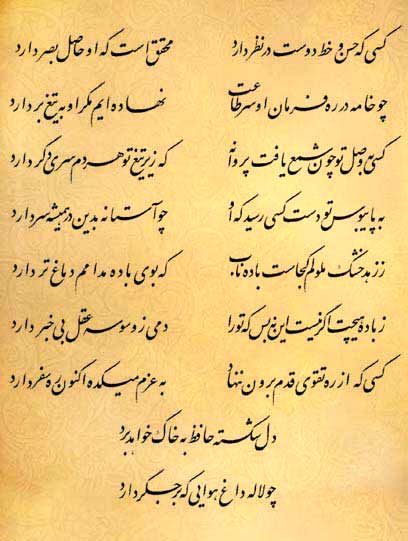 کسی که حسن و خط دوست در نظر دارد محقق است که او حاصل بصر دارد
چو خامه در ره فرمان او سر طاعت نهاده ایم مگر او به تیغ بردارد
کسی به وصل تو چون شمع یافت پروانه که زیر تیغ تو هر دم سری دگر دارد
به پایبوس تو دست کسی رسید که او چو آستانه بدین در همیشه سر دارد
ز زهد خشک ملولم کجاست باده ناب که بوی باده مدامم دماغ تر دارد
ز باده هیچت اگر نیست این نه بس که تو را دمی ز وسوسه عقل بی خبر دارد
کسی که از ره تقوی قدم برون ننهاد به عزم میکده اکنون ره سفر دارد
دل شکسته حافظ به خاک خواهد برد
چو لاله داغ هوایی که بر جگر دارد